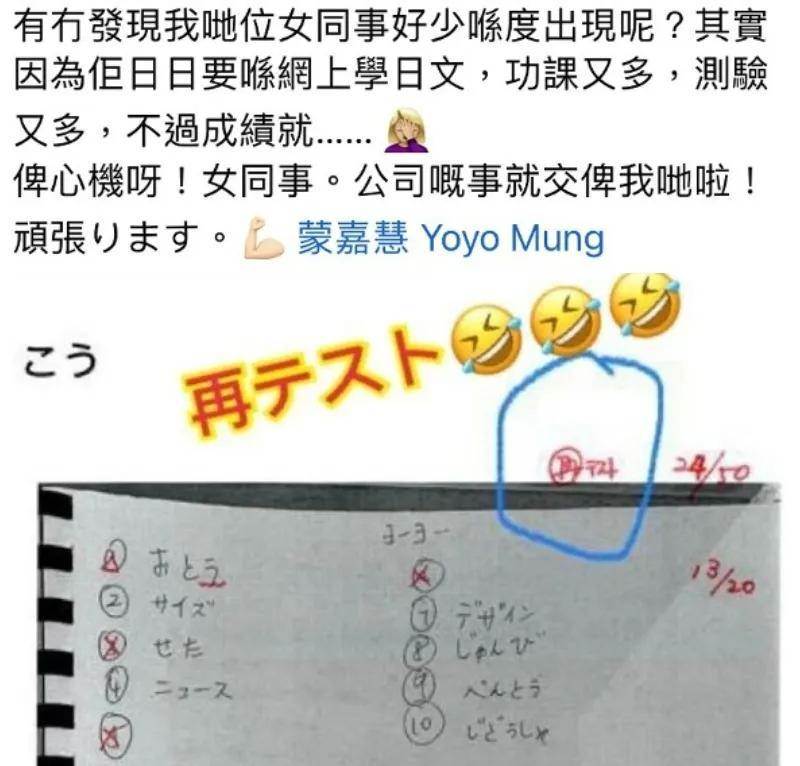 有冇發現我哋位女同事好少喺度出現呢？其實
因為佢日日要喺網上學日文，功課又多，測驗
又多，不過成績就...... 🤦🏼‍♀️
俾心機呀！女同事。公司嘅事就交俾我哋啦！
頑張ります。💪🏻 蒙嘉慧 Yoyo Mung
こう
再テスト🤣🤣🤣
再テスト 24/50
ヨーヨー
13/20
1 おとう
2 サイズ
3 せた
4 ニュース
5
6
7 デザイン
8 じゅんび
9 べんとう
10 じどうしゃ